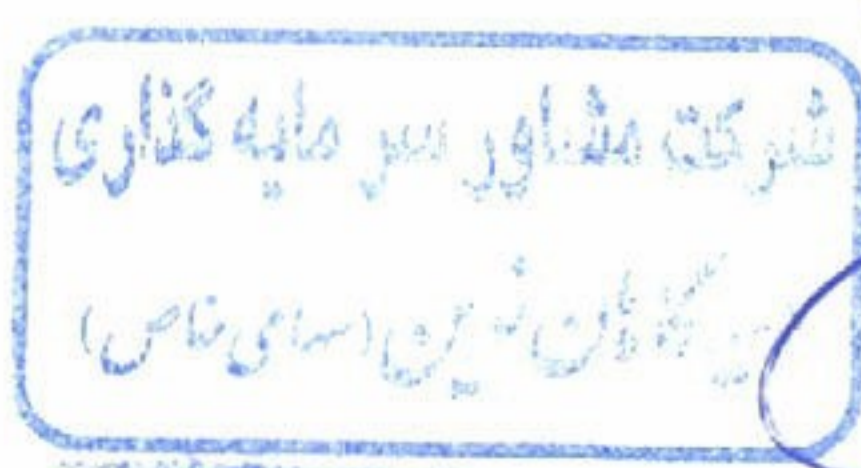 شرکت مشاور سرمایه گذاری
نوین (سهامی خاص)